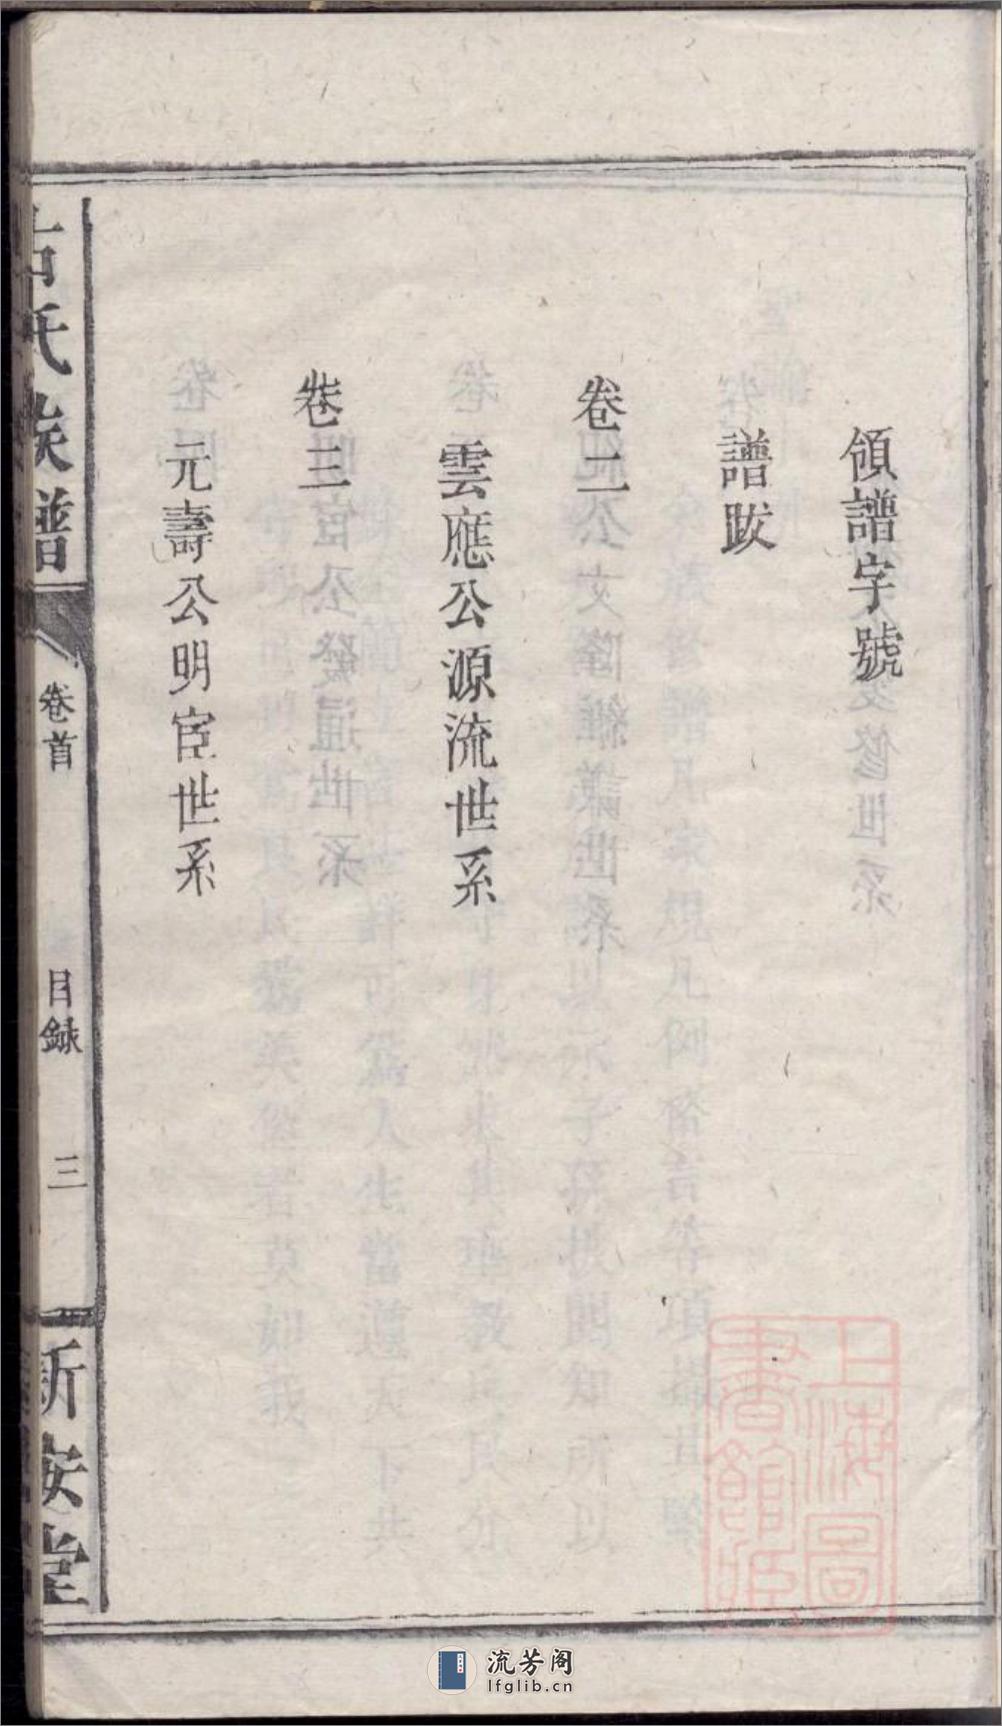 領譜字號
譜跋
卷二
雲應公源流世系
卷三
元壽公明宦世系
古氏族譜
卷首
目録
三
新安堂
上海圖
書館藏
流芳阁
lfglib.cn